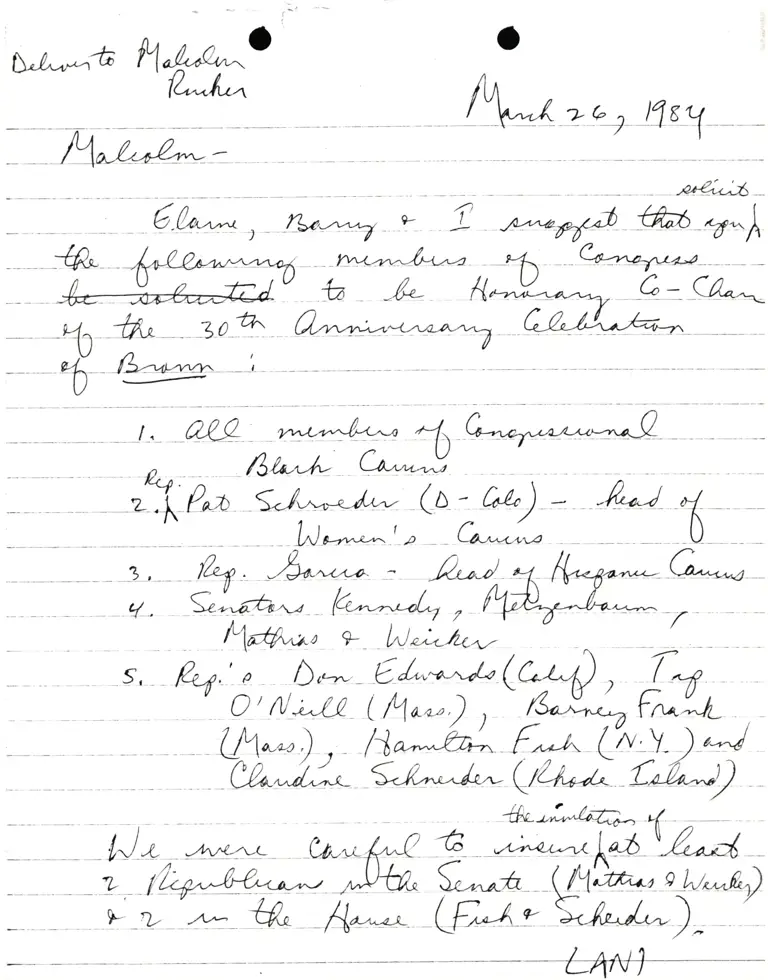 Deliver to Malcolm
Rucker
March 26, 1984
Malcolm –
solicit
Elaine, Barry & I suggest that you
the following members of Congress
be solicited to be Honorary Co-Chair
of the 30th Anniversary Celebration
of Brown :
1. All members of Congressional
Black Caucus
Rep.
2. Pat Schroeder (D - Colo) – head of
Women's Caucus
3. Rep. Garcia – head of Hispanic Caucus
4. Senators Kennedy, Metzenbaum,
Mathias & Weicker
5. Rep.'s Don Edwards (Calif), Tip
O'Neill (Mass.), Barney Frank
(Mass.), Hamilton Fish (N.Y.) and
Claudine Schneider (Rhode Island)
the invitation of
We were careful to insure at least
2 Republicans in the Senate (Mathias & Weicker)
& 2 in the House (Fish & Scheider).